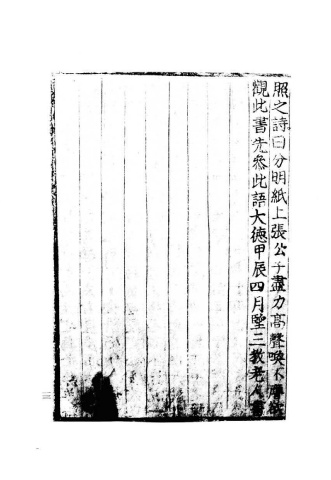 照之詩曰分明紙上張公子盡力高聲喚不應欲
觀此書先參此語大德甲辰四月望三教老人書